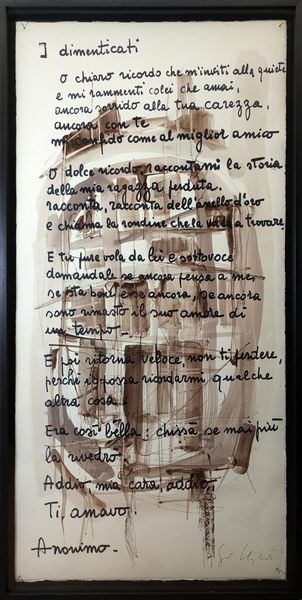 I dimenticati
O chiaro ricordo che m'inviti alla quiete
e mi rammenti colei che amai,
ancora sorrido alla tua carezza,
ancora con te
mi confido come al miglior amico
O dolce ricordo, raccontami la storia
della mia ragazza perduta.
racconta, racconta dell'anello d'oro
e chiama la rondine che la vada a trovare
E tu pure vola da lei e sottovoce
domandale se ancora pensa a me,
se sta bene e se ancora, se ancora
sono rimasto il suo amore di
un tempo.
E poi ritorna veloce, non ti perdere,
perchè io possa ricordarmi qualche
altra cosa.
Era così bella: chissà se mai più
la rivedrò.
Addio mia cara, addio
Ti amavo.
Anonimo.